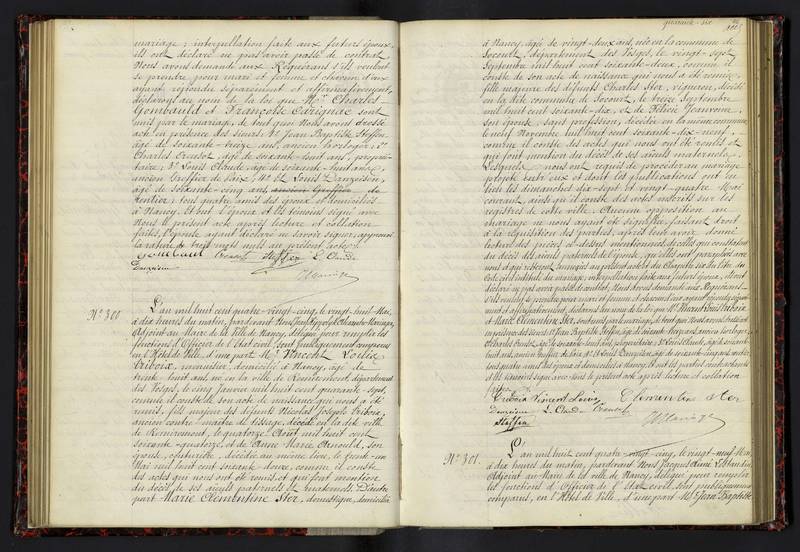 mariage; interpellation faite aux futurs époux,
ils ont déclaré ne pas avoir passé de contrat.
Nous avons demandé aux Requérans s'ils veulent
se prendre pour mari et femme et chacun d'eux
ayant répondu séparément et affirmativement,
déclarons au nom de la loi que Mr Charles
Gombauld et Françoise Carignac sont
unis par le mariage, de tout quoi Nous avons dressé
acte en présence des sieurs: 1° Jean Baptiste Steffen,
âgé de soixante-treize ans, ancien horloger; 2°
Charles Creusot, âgé de soixante-huit ans, propriétaire;
3° Louis Claude, âgé de soixante-huit ans,
ancien greffier de paix; 4° et Louis Danzeisen,
âgé de soixante-cinq ans, ancien Greffier de
Rentier; tous quatre amis des époux et domiciliés
à Nancy. Et ont l'époux et les témoins signé avec
Nous le présent acte après lecture et collation
faites, l'épouse ayant déclaré ne savoir signer, approuvé
la rature de trois mots nuls au présent acte.
Gombaud Creusot Steffen L. Claude
Danzeisen
N° 300
L'an mil huit cent quatre-vingt-cinq, le vingt-huit Mai,
à dix heures du matin, pardevant Nous
Adjoint au Maire de la ville de Nancy, délégué pour remplir les
fonctions d'Officier de l'état civil, sont publiquement comparus
en l'Hôtel de Ville, d'une part Mr Vincent Louis
Triboix, manouvrier, domicilié à Nancy, âgé de
trente-huit ans, né en la ville de Remiremont, département
des Vosges, le cinq Janvier mil huit cent quarante-sept,
comme il conste de son acte de naissance qui nous a été
remis, fils majeur des défunts Nicolas Joseph Triboix,
ancien contre-maître de tissage, décédé en la dite ville
de Remiremont, le quatorze Août mil huit cent
soixante-quatorze, et de Anne Marie Arnould, son
épouse, couturière, décédée au même lieu, le trente-un
Mai mil huit cent soixante-douze, comme il conste
des actes qui nous ont été remis et qui font mention
du décès de ses aïeuls paternels et maternels. D'autre
part Marie Clémentine Ster, domestique, domiciliée
quarante-six
à Nancy, âgée de vingt-deux ans, née en la commune de
Socourt, département des Vosges, le vingt-sept
Septembre mil huit cent soixante-deux, comme il
conste de son acte de naissance qui nous a été remis,
fille majeure des défunts Charles Ster, vigneron, décédé
en la dite commune de Socourt, le treize Septembre
mil huit cent soixante-dix, et de Félicie Jeanvoine,
son épouse, sans profession, décédée en la même commune
le neuf Novembre mil huit cent soixante-dix-neuf,
comme il conste des actes qui nous ont été remis et
qui font mention du décès de ses aïeuls maternels.
Lesquels nous ont requis de procéder au mariage
projeté entre eux et dont les publications ont eu
lieu les dimanches dix-sept et vingt-quatre Mai
courant, ainsi qu'il conste des actes inscrits sur les
registres de cette ville. Aucune opposition au
mariage ne nous ayant été signifiée, faisant droit
à la réquisition des parties, après leur avoir donné
lecture des pièces ci-dessus mentionnées, de celles qui constatent
du décès des aïeuls paternels de l'épouse, qu'elles ont paraphées avec
nous et qui resteront annexées au présent acte et du Chapitre six du titre du
Code civil intitulé du mariage; interpellation faite aux futurs époux, ils ont
déclaré ne pas avoir passé de contrat. Nous avons demandé aux Requérants
s'ils veulent se prendre pour mari et femme et chacun d'eux ayant répondu séparément
et affirmativement, déclarons au nom de la loi que Mr Vincent Louis Triboix
et Marie Clémentine Ster, sont unis par le mariage, de tout quoi Nous avons dressé acte
en présence des sieurs: 1° Jean Baptiste Steffen, âgé de soixante-treize ans, ancien horloger; 2°
Charles Creusot, âgé de soixante-huit ans, propriétaire; 3° Louis Claude, âgé de soixante-huit
ans, ancien greffier de paix; 4° et Louis Danzeisen, âgé de soixante-cinq ans, rentier;
tous quatre amis des époux et domiciliés à Nancy. Et ont les parties contractantes
et les témoins signé avec Nous le présent acte après lecture et collation
faites.
Triboix Vincent Louis Clémentine Ster
Danzeisen L. Claude Creusot
Steffen
N° 301
L'an mil huit cent quatre-vingt-cinq, le vingt-neuf Mai,
à dix heures du matin, pardevant Nous
Adjoint au Maire de la ville de Nancy, délégué pour remplir
les fonctions d'Officier de l'état civil, sont publiquement
comparus, en l'Hôtel de Ville, d'une part Mr Jean Baptiste